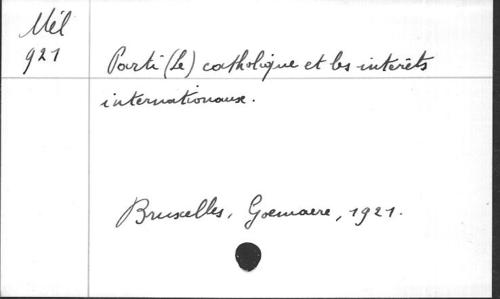 Mél
921
Parti (Le) catholique et les interêts
internationaux.
Bruxelles, Goemaere, 1921.